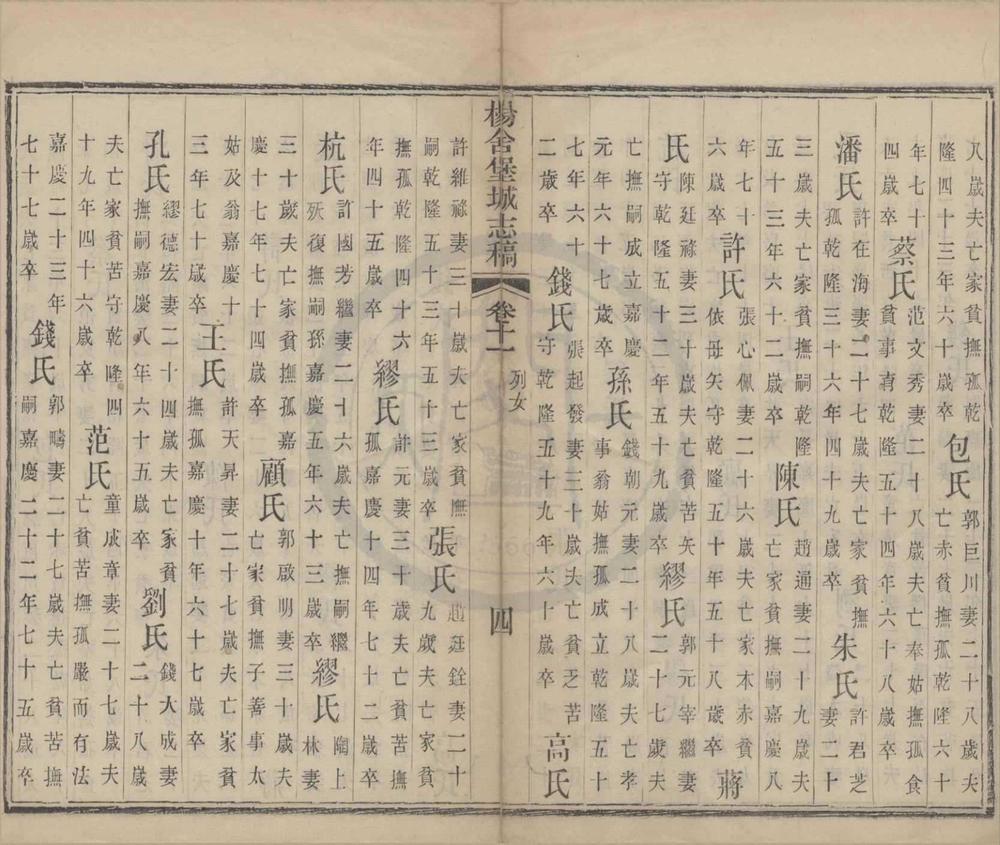 八歳夫亡家貧撫孤乾隆四十三年六十歳卒包氏郭巨川妻二十八歳夫亡赤貧撫孤乾隆六十
年七十四歳卒蔡氏范文秀妻二十八歳夫亡奉姑撫孤食貧事育乾隆五十四年六十八歳卒
潘氏許在海妻二十七歳夫亡家貧撫孤乾隆三十六年四十九歳卒朱氏許君芝妻二十
三歳夫亡家貧撫嗣乾隆五十三年六十二歳卒陳氏趙通妻二十九歳夫亡家貧撫嗣嘉慶八
年七十六歳卒許氏張心佩妻二十六歳夫亡家本赤貧依母矢守乾隆五十年五十八歳卒蔣
氏陳廷祿妻三十歳夫亡貧苦矢守乾隆五十二年五十九歳卒繆氏郭元宰繼妻二十七歳夫
亡撫嗣成立嘉慶元年六十七歳卒孫氏錢朝元妻二十八歳夫亡孝事翁姑撫孤成立乾隆五十
七年六十二歳卒錢氏張起發妻三十歳夫亡貧乏苦守乾隆五十九年六十歳卒高氏
楊舍堡城志稿 卷十一 列女 四
許維祿妻三十歳夫亡家貧撫嗣乾隆五十三年五十三歳卒張氏趙廷銓妻二十九歳夫亡家貧
撫孤乾隆四十六年四十五歳卒繆氏許元妻三十歳夫亡貧苦撫孤嘉慶十四年七十二歳卒
杭氏許國芳繼妻二十六歳夫亡撫嗣繼殀復撫嗣孫嘉慶五年六十三歳卒繆氏陶上林妻
三十歳夫亡家貧撫孤嘉慶十年七十四歳卒顧氏郭啟明妻三十歳夫亡家貧撫子善事太
姑及翁嘉慶十三年七十歳卒王氏許天昇妻二十七歳夫亡家貧撫孤嘉慶十年六十七歳卒
孔氏繆德宏妻二十四歳夫亡家貧撫嗣嘉慶八年六十五歳卒劉氏錢大成妻二十八歳
夫亡家貧苦守乾隆四十九年四十六歳卒范氏童成章妻二十七歳夫亡貧苦撫孤嚴而有法
嘉慶二十三年七十七歳卒錢氏郭疇妻二十七歳夫亡貧苦撫嗣嘉慶二十二年七十五歳卒